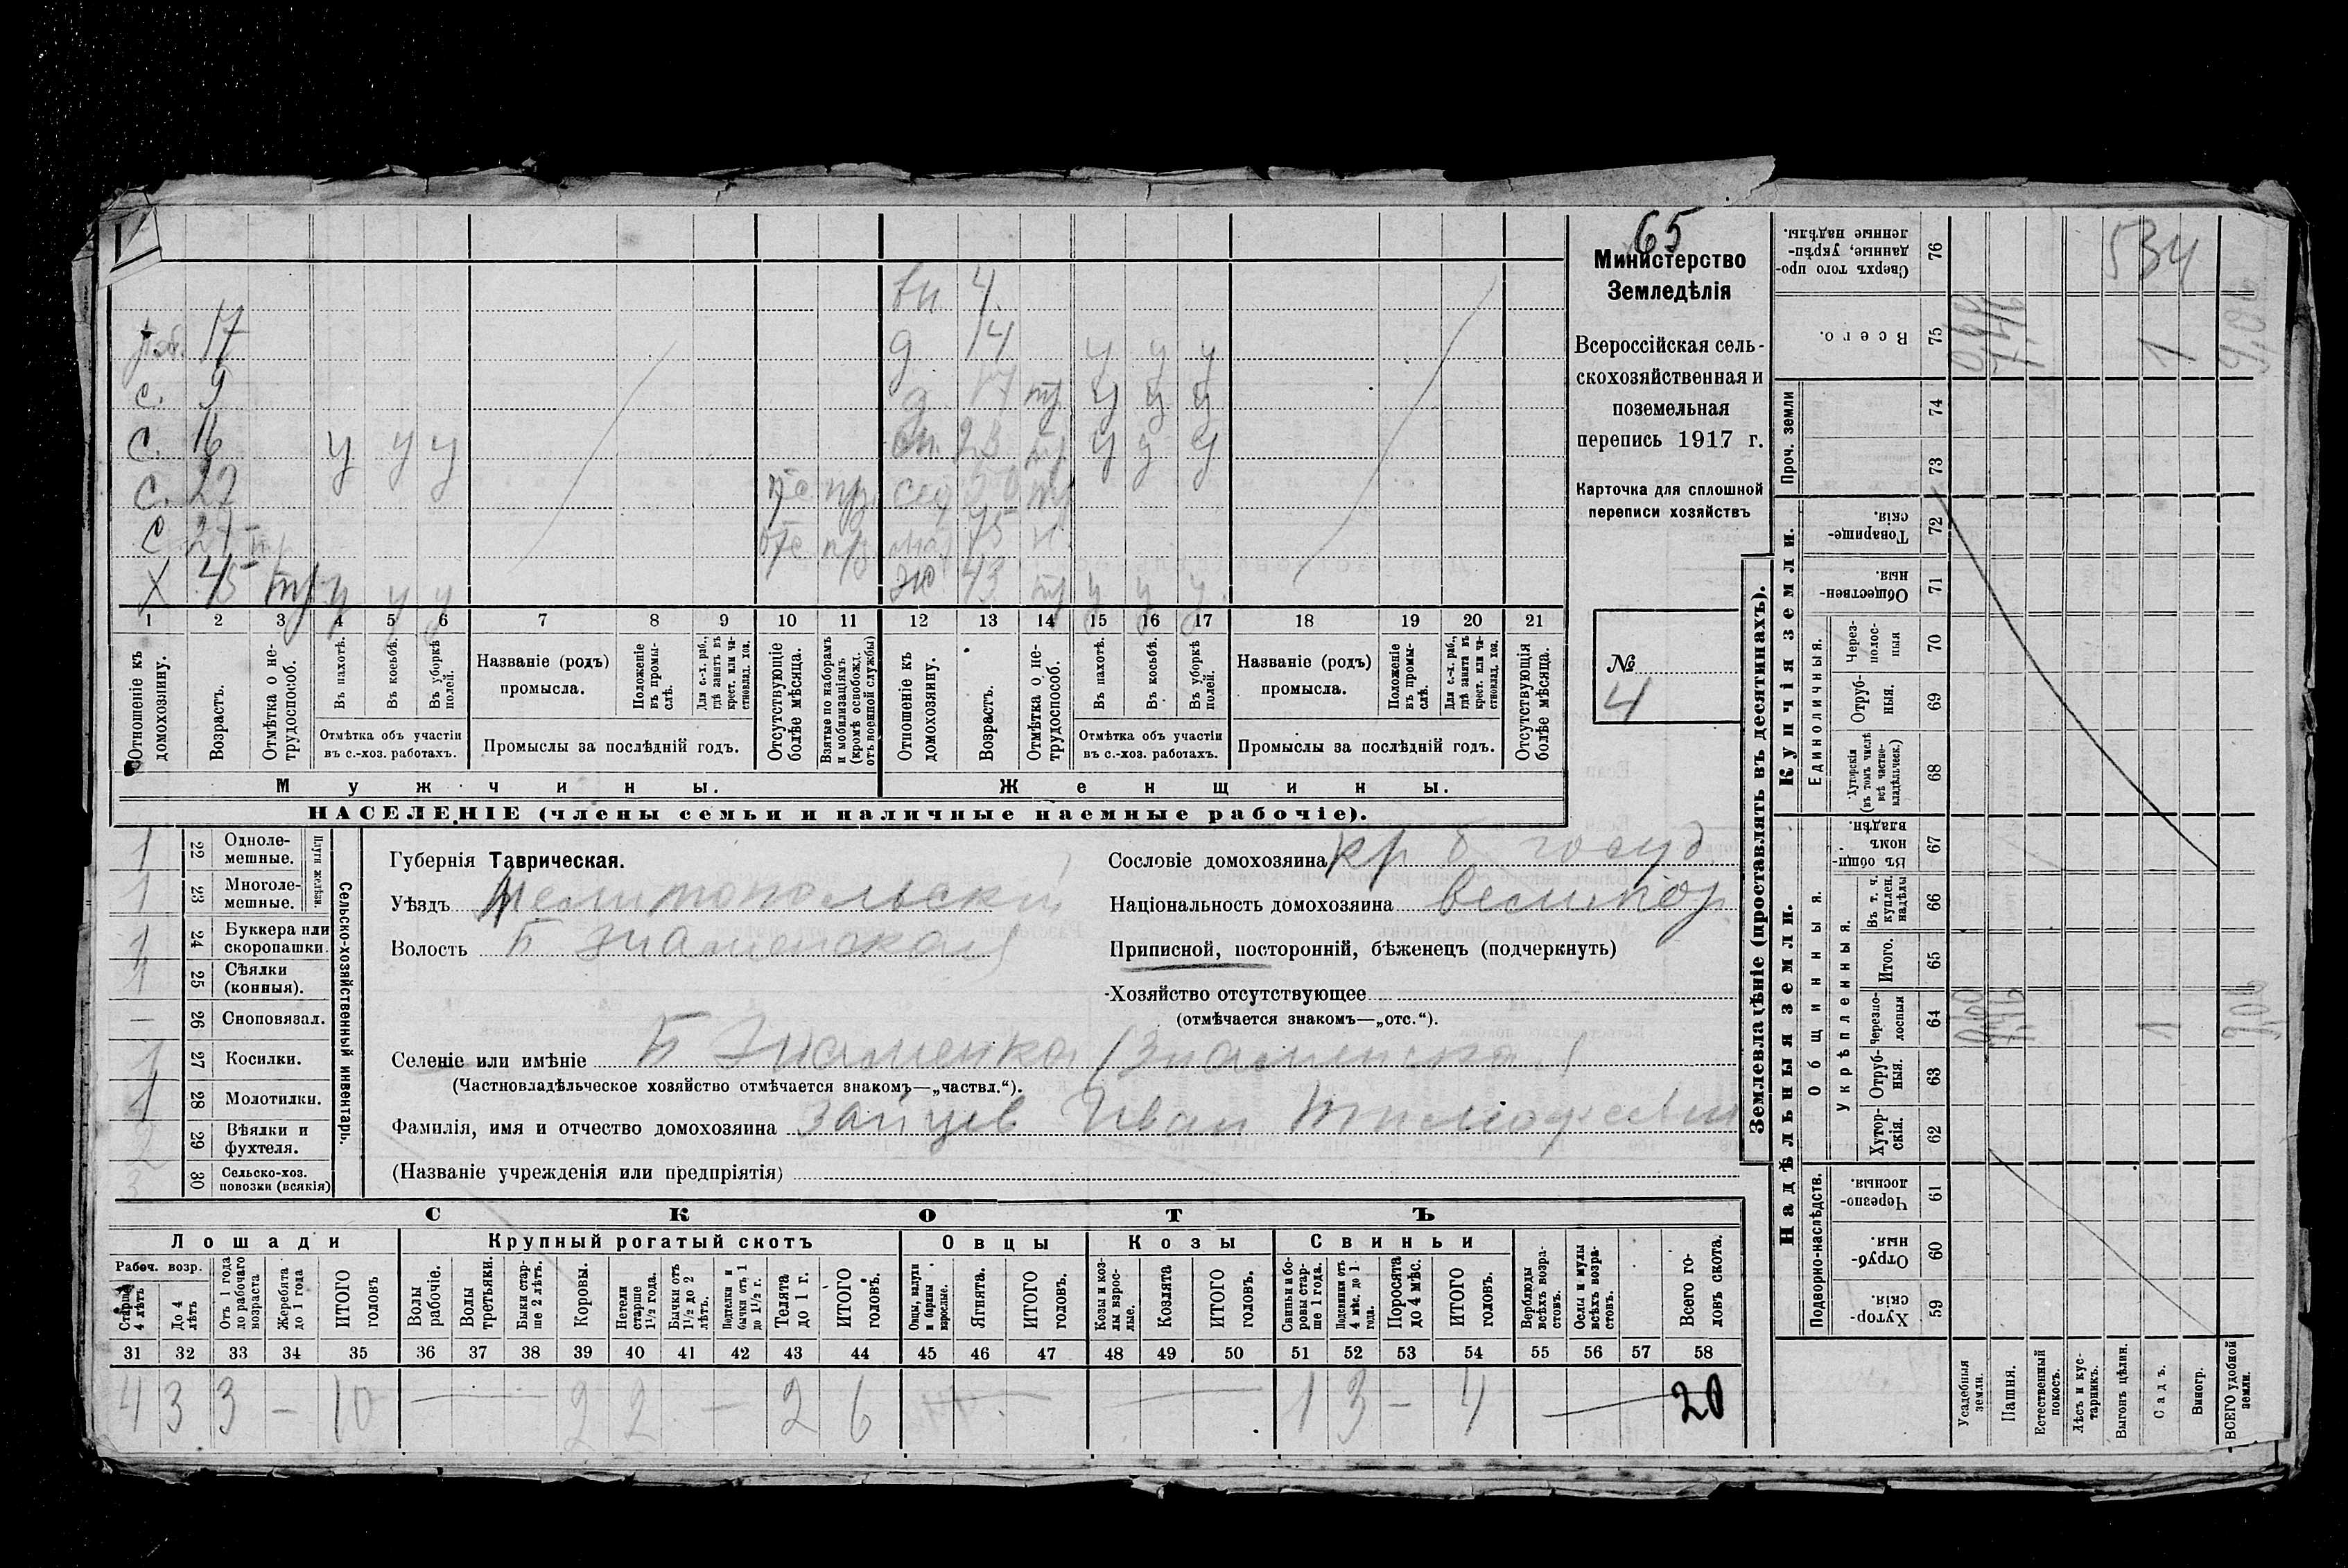 65
Министерство
Земледѣлія
Всероссійская сель-
скохозяйственная и
поземельная
перепись 1917 г.
Карточка для сплошной
переписи хозяйствъ
№
4
вн. 4
раб. 17
д 14 у у у
с. 9
д тр у у у
с. 16 у у у
сн. 23 тр у у у
с. 22
с
Х 45 тр у у у
ж 43 тр у у у
1 2 3 4 5 6 7 8 9 10 11 12 13 14 15 16 17 18 19 20 21
Отношеніе къ домохозяину.
Возрастъ.
Отмѣтка о не-
трудоспособ.
Въ пахотѣ.
Въ косьбѣ.
Въ уборкѣ полей.
Отмѣтка объ участіи
въ с.-хоз. работахъ.
Названіе (родъ)
промысла.
Положеніе въ промы-
слѣ.
Для с.-х. раб., гдѣ занятъ въ крест. или ча-
стновлад. хоз.
Промыслы за послѣдній годъ.
Отсутствующіе болѣе мѣсяца.
Взятые по наборамъ и мобилизаціямъ (кромѣ освобожд. отъ военной службы)
Отношеніе къ домохозяину.
Возрастъ.
Отмѣтка о не-
трудоспособ.
Въ пахотѣ.
Въ косьбѣ.
Въ уборкѣ полей.
Отмѣтка объ участіи
въ с.-хоз. работахъ.
Названіе (родъ)
промысла.
Положеніе въ промы-
слѣ.
Для с.-х. раб., гдѣ занята въ крест. или ча-
стновлад. хоз.
Промыслы за послѣдній годъ.
Отсутствующія болѣе мѣсяца.
Мужчины.
Женщины.
НАСЕЛЕНІЕ (члены семьи и наличные наемные рабочіе).
1 22 Одноле-
мешные.
1 23 Многоле-
мешные.
Плуги желѣзн.
1 24 Буккера или
скоропашки.
1 25 Сѣялки
(конныя).
— 26 Сноповязал.
1 27 Косилки.
1 28 Молотилки.
2 29 Вѣялки и
фухтеля.
3 30 Сельско-хоз.
повозки (всякія)
Сельско-хозяйственный инвентарь.
Губернія Таврическая.
Уѣздъ Мелитопольский
Волость Б Знаменская
Сословіе домохозяина кр б. госуд
Національность домохозяина великор
Приписной, посторонній, бѣженецъ (подчеркнуть)
Хозяйство отсутствующее
(отмѣчается знакомъ—„отс.“).
Селеніе или имѣніе Б Знаменка (Знаменская)
(Частновладѣльческое хозяйство отмѣчается знакомъ—„частвл.“).
Фамилія, имя и отчество домохозяина Зайцев Иван Тимофеевич
(Названіе учрежденія или предпріятія)
СКОТЪ
Лошади
Крупный рогатый скотъ
Овцы
Козы
Свиньи
Рабоч. возр.
Старше 4 лѣтъ
До 4 лѣтъ
Отъ 1 года до рабочаго возраста
Жеребята до 1 года
ИТОГО головъ
Волы рабочіе.
Волы третьяки.
Быки стар-
ше 2 лѣтъ.
Коровы.
Нетели старше 1½ года.
Бычки отъ 1½ до 2 лѣтъ.
Подтелки и бычки отъ 1 до 1½ г.
Телята до 1 г.
ИТОГО головъ.
Овцы, валухи и бараны взрослые.
Ягнята.
ИТОГО головъ.
Козы и коз-
лы взрос-
лые.
Козлята
ИТОГО головъ.
Свиньи и бо-
ровы стар-
ше 1 года.
Подсвинки отъ 4 мѣс. до 1 года.
Поросята до 4 мѣс.
ИТОГО головъ.
Верблюды всѣхъ возра-
стовъ.
Ослы и мулы всѣхъ возра-
стовъ.
Всего го-
ловъ скота.
31 32 33 34 35 36 37 38 39 40 41 42 43 44 45 46 47 48 49 50 51 52 53 54 55 56 57 58
4 3 3 — 10 — 2 2 — 2 6 — — 1 3 — 4 — 20
Землевладѣніе (проставлять въ десятинахъ).
Надѣльныя земли.
Купчія земли.
Проч. земли
Подворно-наслѣдств.
Общинныя.
Укрѣпленныя.
Единоличныя.
Сверхъ того про-
данные, укрѣп-
ленные надѣлы. 76
534
Всего. 75
1
74
73
Товарище-
скія. 72
Обществен-
ныя. 71
Через-
полос-
ныя 70
Отруб-
ныя. 69
Хуторскія (въ томъ числѣ всѣ частно-
владѣльческ.) 68
Въ общин-
номъ
владѣн. 67
Въ т. ч. куплен. надѣлы 66
Итого. 65
Черезпо-
лосныя 64
1
Отруб-
ныя. 63
Хутор-
скія. 62
Черезпо-
лосныя. 61
Отруб-
ныя. 60
Хутор-
скія. 59
Усадебныя земли.
Пашня.
Естественный покосъ.
Лѣсъ и кус-
тарникъ.
Выгонъ цѣлин.
Садъ.
Виногр.
ВСЕГО удобной земли.